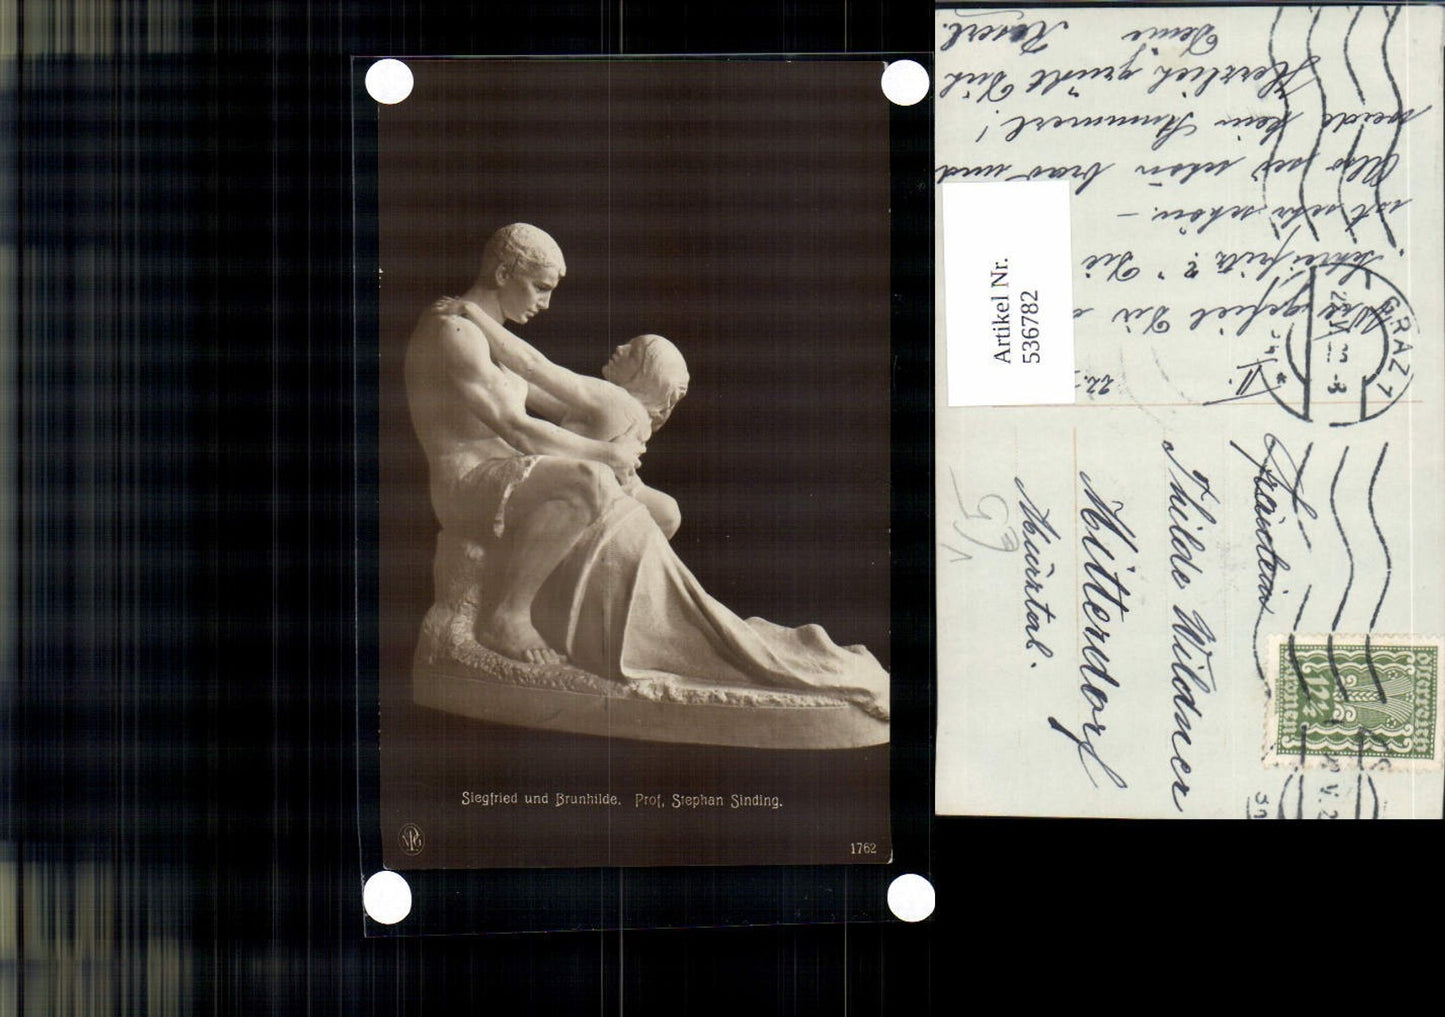 Siegfried und Brunhilde. Prof. Stephan Sinding.
1762
Artikel Nr.
536782
22.
II.
gefiel Dir
? Die
ist sehr schön. –
Also sei schön brav und
kein Stummerl!
Herzlich grüßt Dich
Deine Reserl.
GRAZ 1
Fräulein
Thilde Wildner
Mitterdorf
Mürztal.
Österreich
12½